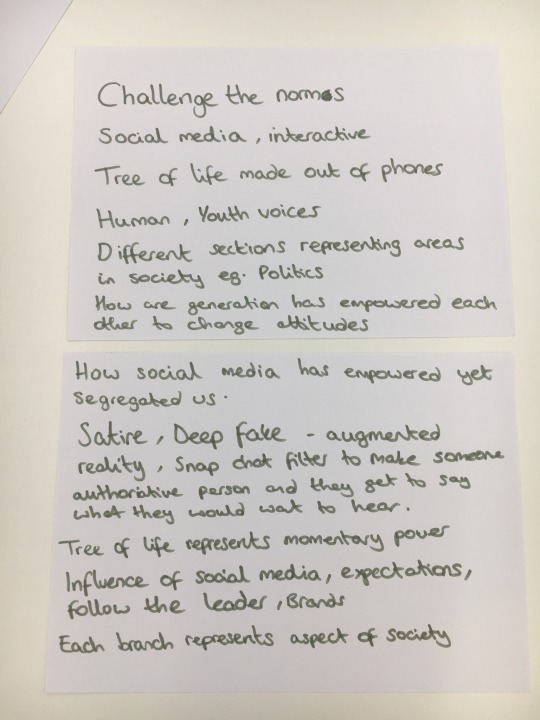 Challenge the normos
Social media , interactive
Tree of life made out of phones
Human , Youth voices
Different sections representing areas
in society eg. Politics
How are generation has empowered each
other to change attitudes
How social media has empowered yet
segregated us.
Satire , Deep Fake - augmented
reality , Snap chat filter to make someone
authoriative person and they get to say
what they would wat to hear.
Tree of life represents momentary power
Influence of social media, expectations,
follow the leader , Brands
Each branch represents aspect of society